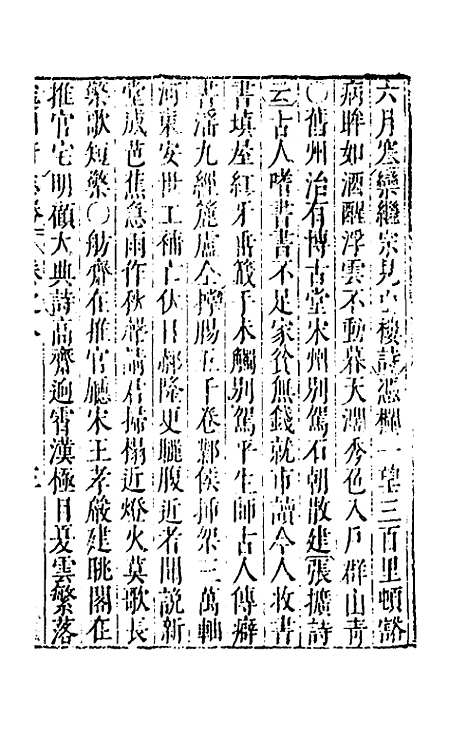 六月寒樂繼宗見山樓詩憑欄一望三百里頓豁
病眸如酒醒浮雲不動暮天濶秀色入戶群山青
○舊州治有博古堂宋州別駕石朝散建張擴詩
云古人嗜書書不足家貧無錢就市讀今人收書
書填屋紅牙垂籤手未觸別駕平生師古人傳癖
書淫九經簏盧仝撐腸五千卷鄴侯插架三萬軸
河東安世工補亡伏日郝隆更曬腹近者聞說新
堂成芭蕉急雨作秋聲請君掃榻近燈火莫歌長
檠歌短檠○舫齋在推官廳宋王孝嚴建眺閣在
推官宅明顧大典詩高齋逈霄漢極目夏雲繁落
卷之八